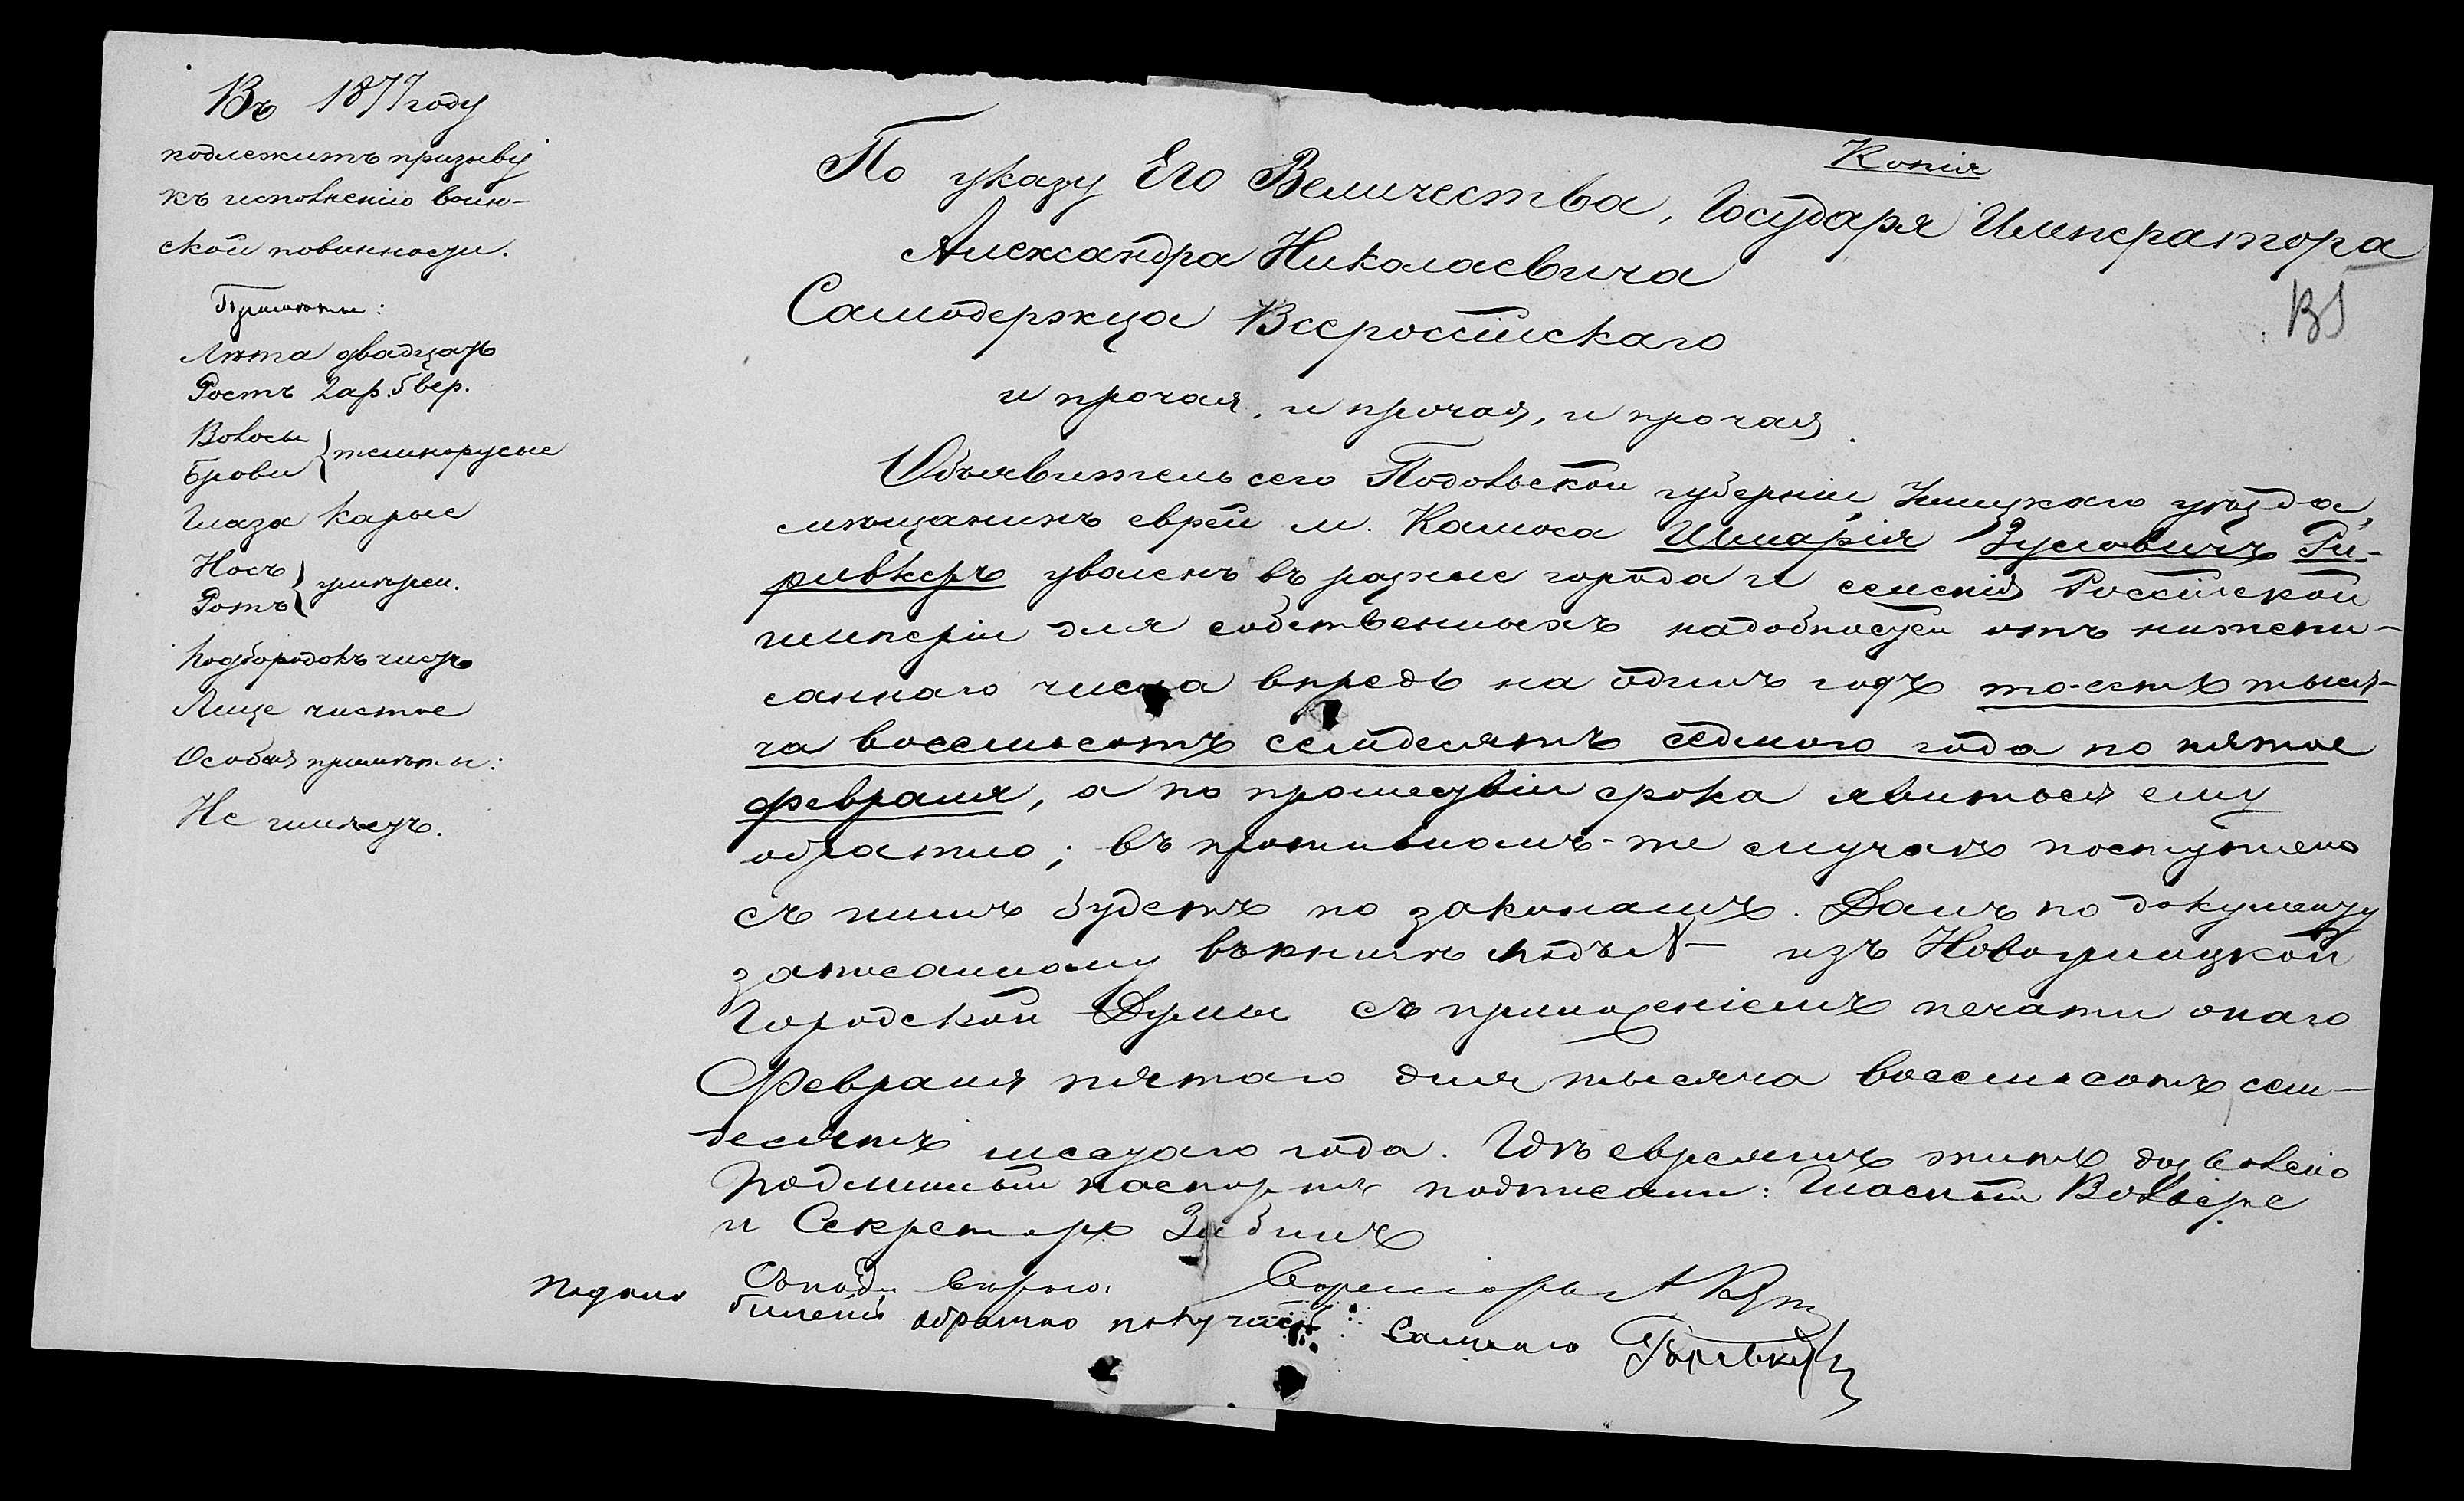 Въ 1877 году
подлежитъ призыву
къ исполненію воин-
ской повинности.
Примѣты:
Лѣта двадцать
Ростъ 2 ар. 5 вер.
Волосы
Брови } темнорусые
Глаза карые
Носъ
Ротъ } умѣрен.
Подбородокъ чистъ
Лице чистое
Особыя примѣты:
Не имѣетъ.
Копія
По указу Его Величества, Государя Императора
Александра Николаевича
Самодержца Всероссійскаго
и прочая, и прочая, и прочая.
Объявитель сего Подольской губерніи, Ушицкаго уѣзда,
мѣщанинъ еврей м. Калюса Шмарія Зусовичъ Ги-
ривкеръ уволенъ въ разные города и селенія Россійской
имперіи для собственныхъ надобностей отъ нижепи-
саннаго числа впредь на одинъ годъ то-есть тыся-
ча восемьсотъ семдесятъ седмого года по пятое
февраля, а по прошествіи срока явиться ему
обратно; въ противномъ-же случаѣ поступлено
съ нимъ будетъ по законамъ. Данъ по документу
записанному въ книгѣ подъ № изъ Новоушицкой
Городской Думы съ приложеніемъ печати онаго
Февраля пятаго дня тысяча восемьсотъ сем-
десятъ шестаго года. Гдѣ евреямъ жить дозволено
Подлинный паспортъ подписали: Гласный
и Секретарь
вѣрно.
билетъ обратно получилъ